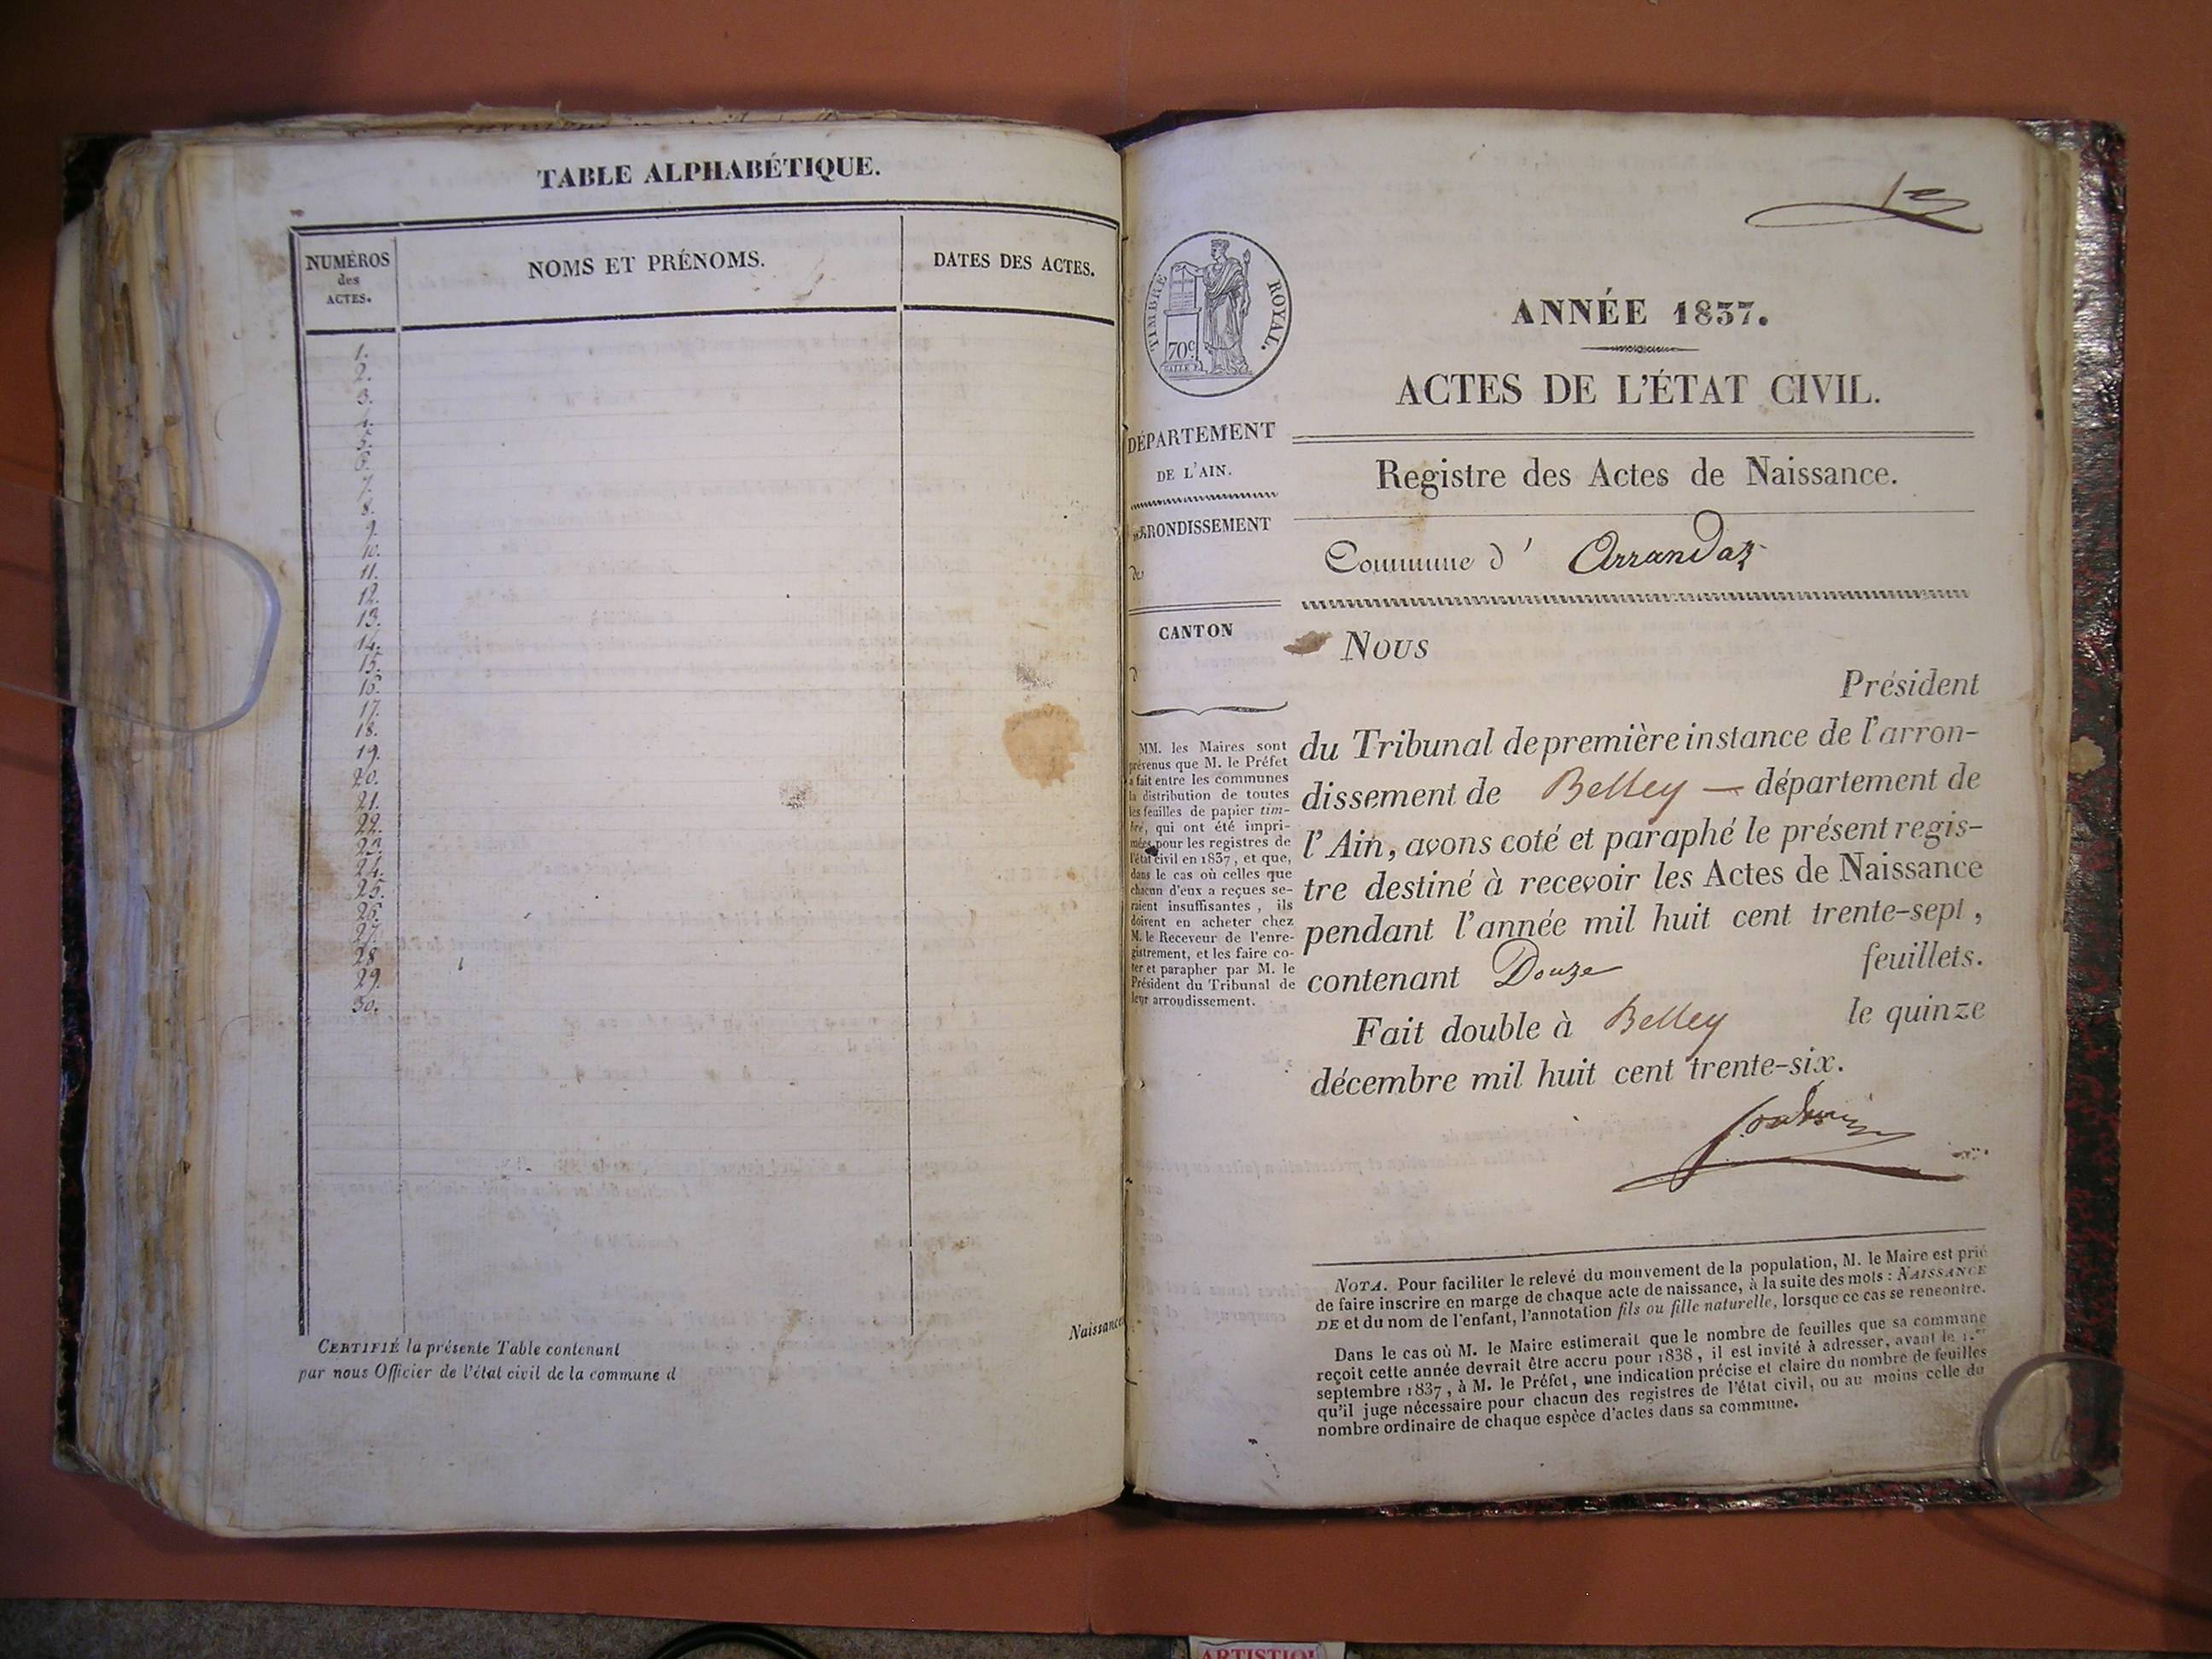 TABLE ALPHABÉTIQUE.
NUMÉROS
des
ACTES.
NOMS ET PRÉNOMS.
DATES DES ACTES.
1.
2.
3.
4.
5.
6.
7.
8.
9.
10.
11.
12.
13.
14.
15.
16.
17.
18.
19.
20.
21.
22.
23.
24.
25.
26.
27.
28
29.
30.
CERTIFIÉ la présente Table contenant
Naissance
par nous Officier de l'état civil de la commune d
TIMBRE ROYAL.
70c.
DÉPARTEMENT
DE L'AIN.
ARRONDISSEMENT
de
CANTON
d
MM. les Maires sont
prévenus que M. le Préfet
a fait entre les communes
la distribution de toutes
les feuilles de papier tim-
bré, qui ont été impri-
mées pour les registres de
l'état civil en 1837, et que,
dans le cas où celles que
chacun d'eux a reçues se-
raient insuffisantes, ils
doivent en acheter chez
M. le Receveur de l'enre-
gistrement, et les faire co-
ter et parapher par M. le
Président du Tribunal de
leur arrondissement.
ANNÉE 1837.
ACTES DE L'ÉTAT CIVIL.
Registre des Actes de Naissance.
Commune d' Arrandaz
Nous
Président
du Tribunal de première instance de l'arron-
dissement de Belley — département de
l'Ain, avons coté et paraphé le présent regis-
tre destiné à recevoir les Actes de Naissance
pendant l'année mil huit cent trente-sept,
contenant Douze feuillets.
Fait double à Belley le quinze
décembre mil huit cent trente-six.
NOTA. Pour faciliter le relevé du mouvement de la population, M. le Maire est prié
de faire inscrire en marge de chaque acte de naissance, à la suite des mots : NAISSANCE
DE et du nom de l'enfant, l'annotation fils ou fille naturelle, lorsque ce cas se rencontre.
Dans le cas où M. le Maire estimerait que le nombre de feuilles que sa commune
reçoit cette année devrait être accru pour 1838, il est invité à adresser, avant le 1.er
septembre 1837, à M. le Préfet, une indication précise et claire du nombre de feuilles
qu'il juge nécessaire pour chacun des registres de l'état civil, ou au moins celle du
nombre ordinaire de chaque espèce d'actes dans sa commune.